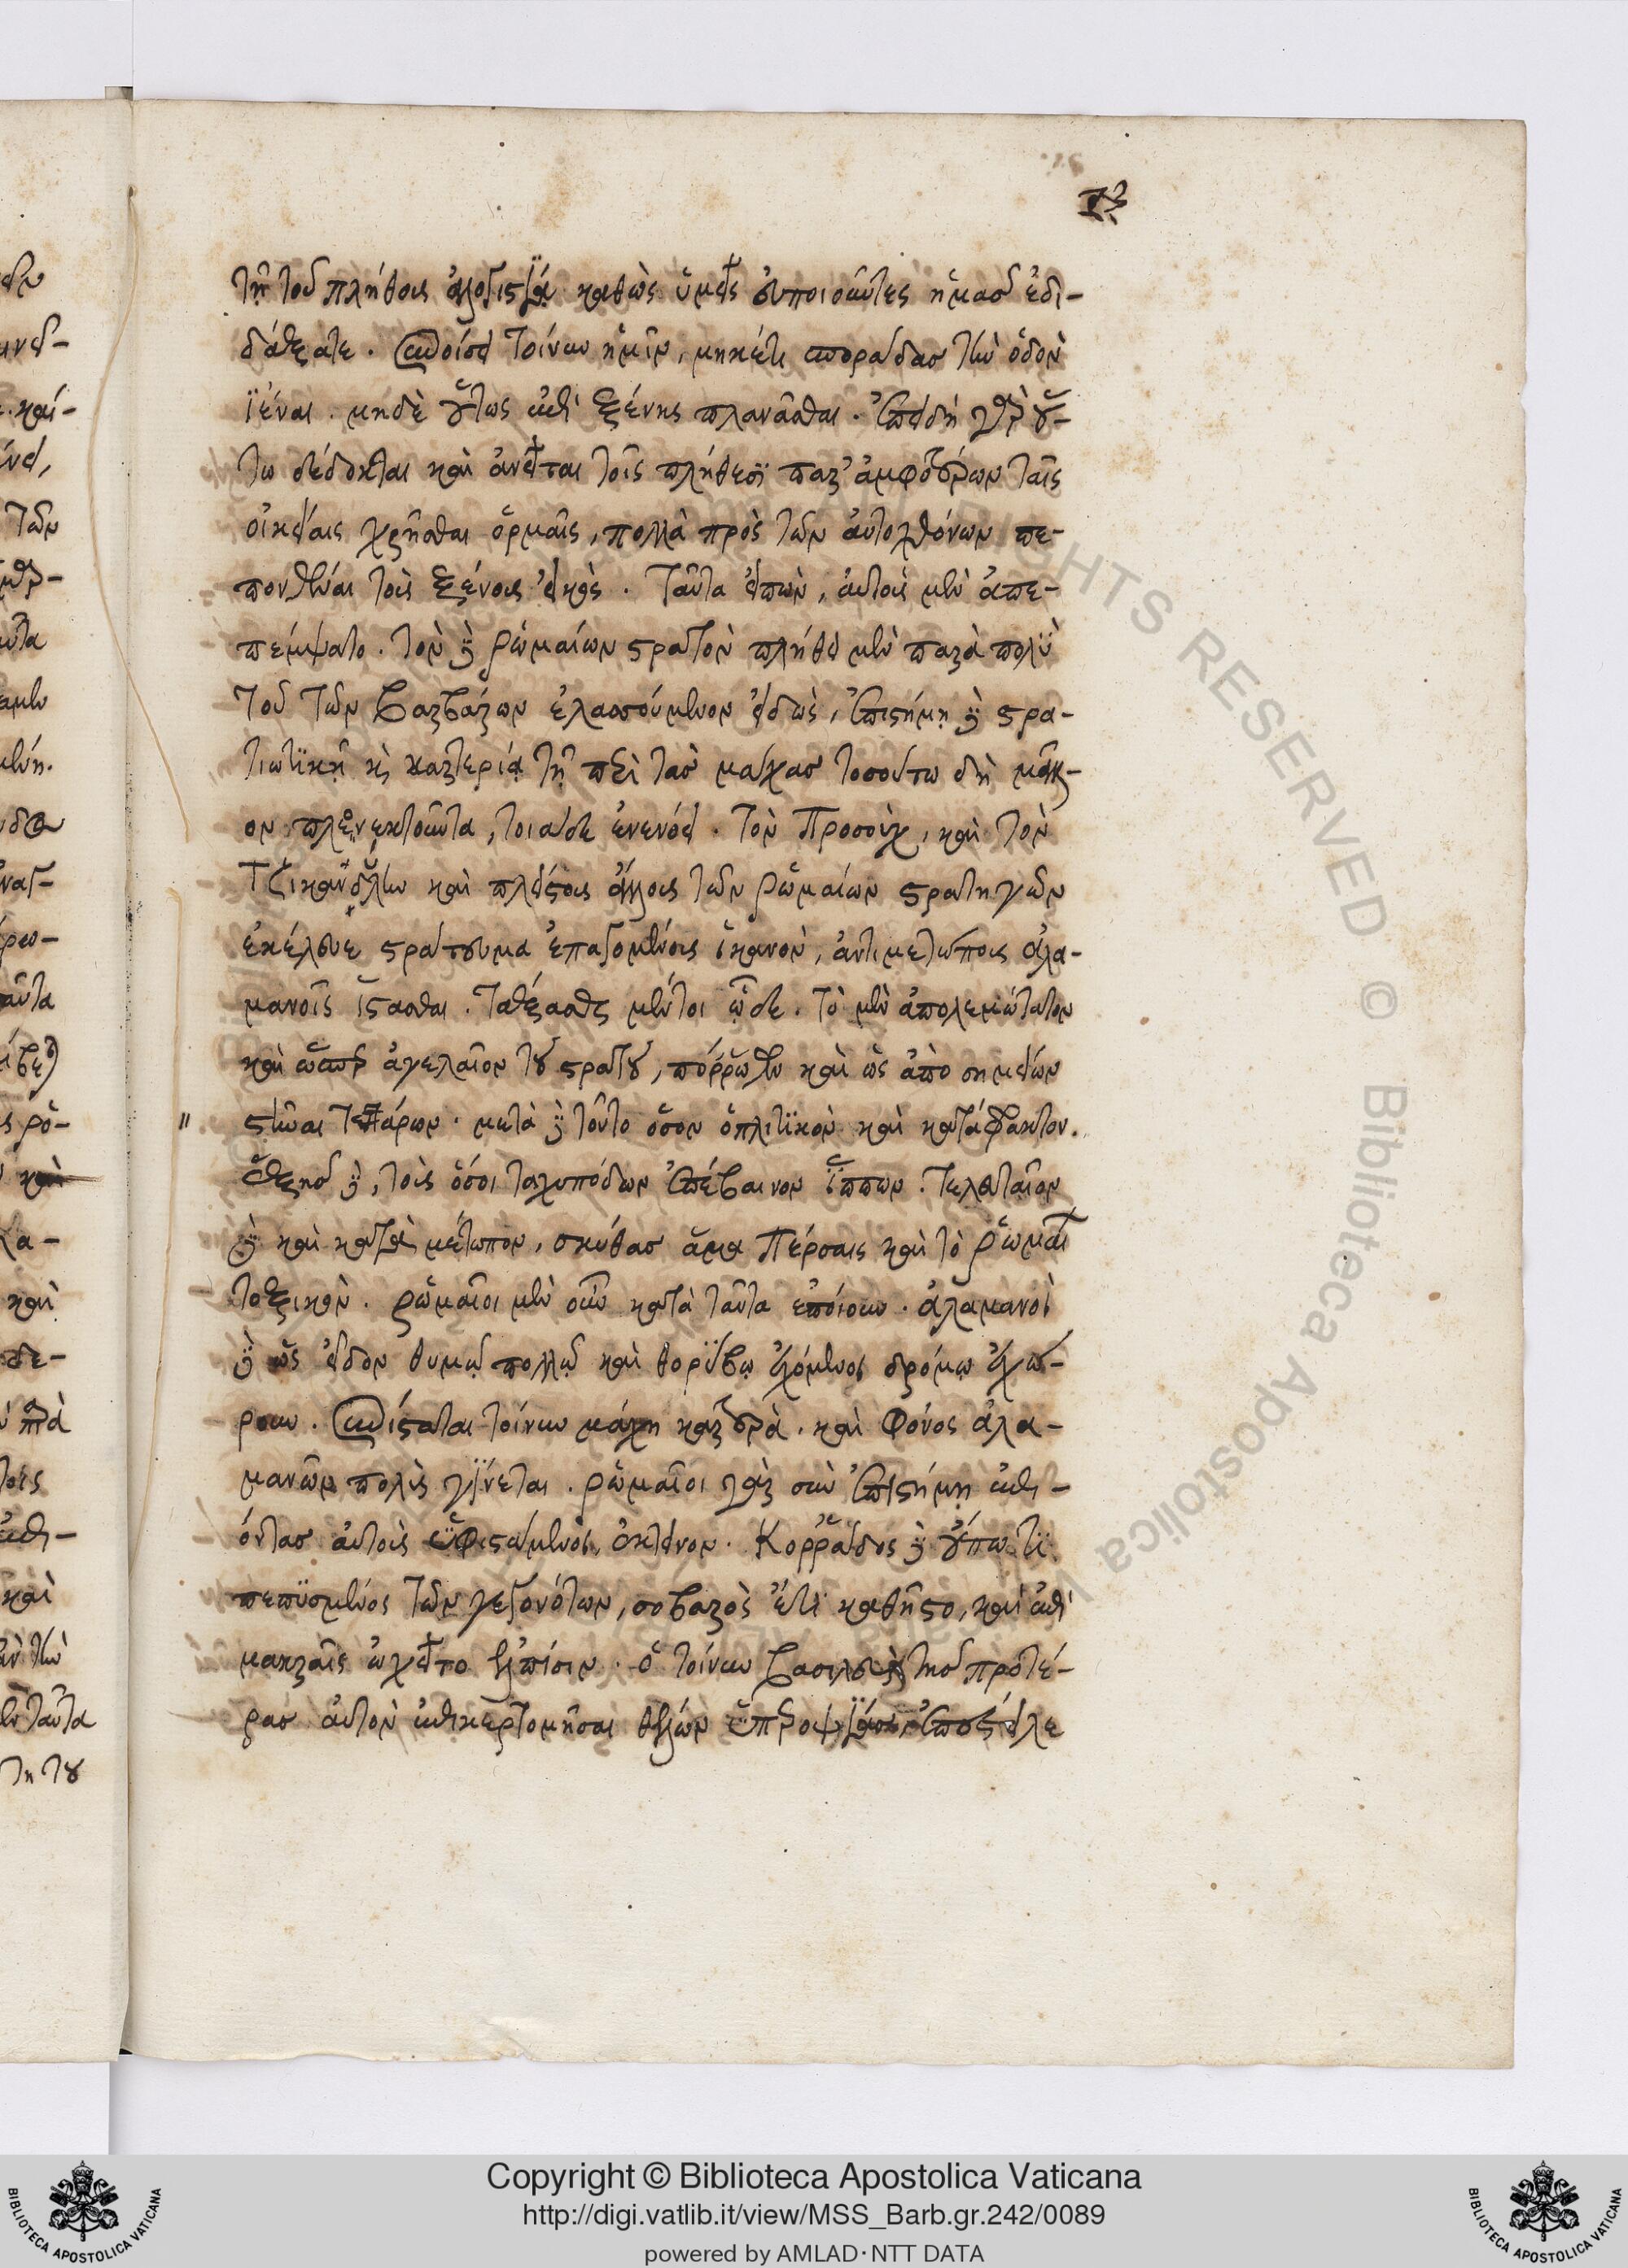 τῇ τοῦ πλήθους ἀλογιστίᾳ καθὼς ὑμεῖς εὐποιοῦντες ἡμᾶς ἐδι-
δάξατε. συνοίσει τοίνυν ἡμῖν, μηκέτι σποράδας τὴν ὁδὸν
ϊέναι. μηδὲ οὕτως ἐπὶ ξένης πλανᾶσθαι. ἐπειδὴ γὰρ οὕ-
τω δέδοκται καὶ ἀνεῖται τοῖς πλήθεσϊ παρ' ἀμφοτέρων ταῖς
οἰκείαις χρῆσθαι ὁρμαῖς, πολλὰ πρὸς τῶν αὐτοχθόνων πε-
πονθέναι τοὺς ξένους εἰκός. Ταῦτα εἰπὼν, αὐτοὺς μὲν ἀπε-
πέμψατο. τὸν δὲ ῥωμαίων στρατὸν πλήθει μὲν παρὰ πολὺ
τοῦ τῶν βαρβάρων ἐλασσούμενον εἰδὼς, ἐπιστήμῃ δὲ στρα-
τιωτϊκῇ κὶ καρτερίᾳ τῇ περὶ τὰς μάχας τοσούτω δὴ μᾶλλ-
ον πλεονεκτοῦντα, τοιάδε ἐνενόει. τὸν Προσοὺχ, καὶ τὸν
Τζικανδύλην καὶ πλείστους ἄλλους τῶν ῥωμαίων στρατηγῶν
ἐκέλευε στράτευμα ἐπαγομένους ἱκανὸν, ἀντιμετώπους ἀλα-
μανοῖς ἵστασθαι. ταξέασθαι μέντοι ὧδε. τὸ μὲν ἀπολεμώτατον
καὶ ὥσπερ ἀγελαῖον τοῦ στρατοῦ, πόρρωθεν καὶ ὡς ἀπὸ σημείων
στῆναι τεττάρων. μετὰ δὲ τοῦτο ὅσον ὁπλιτϊκὸν καὶ κατάφρακτον.
ἑξῆς δὲ, τοὺς ὅσοι ταχυπόδων ἐπέβαινον ἵππων. τελευταῖον
δὲ καὶ κατὰ μέτωπον, σκύθας ἅμα Πέρσαις καὶ τὸ ῥωμαίων
τοξικὸν. ῥωμαῖοι μὲν οὖν κατὰ ταῦτα ἐποίουν. ἀλαμανοὶ
δὲ ὡς εἶδον θυμῷ πολλῷ καὶ θορύβῳ ἐχόμενοι δρόμῳ ἐχώ-
ρουν. συνίσταται τοίνυν μάχη καρτερὰ. καὶ φόνος ἀλα-
μανῶν πολὺς γίνεται. ῥωμαῖοι γὰρ σὺν ἐπιστήμῃ ἐπι-
όντας αὐτοὺς ὑφιστάμενοι, ἔκτεινον. Κορράδος δὲ οὔπω τϊ
πεπϋσμένος τῶν γεγονότων, σοβαρὸς ἔτϊ καθῆστο, καὶ ἐπὶ
μακραῖς ὠχεῖτο ἐλπίσιν. ὁ τοίνυν βασιλεὺς τῆς προτέ-
ρας αὐτὸν ἐπικερτομῆσαι θέλων ὑπεροψίας, ἐπέστειλε